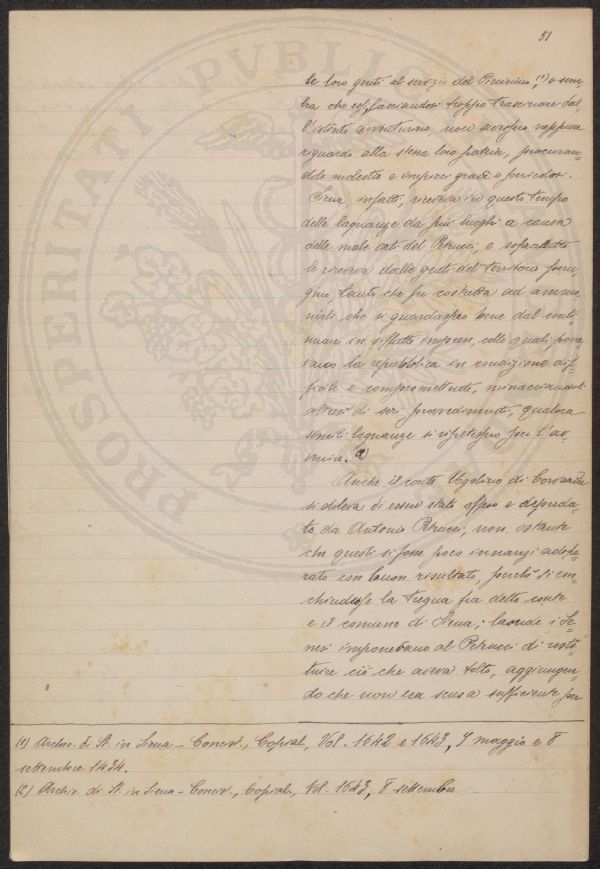 51
te loro genti al servizio del Piccinino, (1) e sem=
bra che essi, lasciandosi troppo trascinare dal=
l'istinto avventuriero, non avessero neppure
riguardo alla stessa loro patria, procuran=
dole molestie e impicci gravi e fastidiosi.
Siena, infatti, riceveva in questo tempo
delle lagnanze da più luoghi a causa
delle male arti del Petrucci, e sopratutto
le riceveva dalle genti del territorio peru=
gino, tanto che fu costretta ad ammo=
nirli, che si guardassero bene dal conti=
nuare in siffatte imprese, colle quali pone=
vano la repubblica in condizione dif=
ficile e compromettente, minacciandoli
altresì di seri provvedimenti, qualora
simili lagnanze si ripetessero per l'av=
venire. (2)
Anche il conte Ugolino di Corvara
si doleva di essere stato offeso e depreda=
to da Antonio Petrucci, non ostante
che questi si fosse poco innanzi adope=
rato con buon risultato, perché si con=
chiudesse la tregua fra detto conte
e il comune di Siena; laonde i Se=
nesi imponevano al Petrucci di resti=
tuire ciò che aveva tolto, aggiungen=
do che non era scusa sufficiente per
(1) Archiv. di St. in Siena - Concist., Copial., Vol. 1642 e 1643, 9 maggio e 8
settembre 1434.
(2) Archiv. di St. in Siena - Concist., Copial., Vol. 1643, 8 settembre
PROSPERITATI PVBLICAE